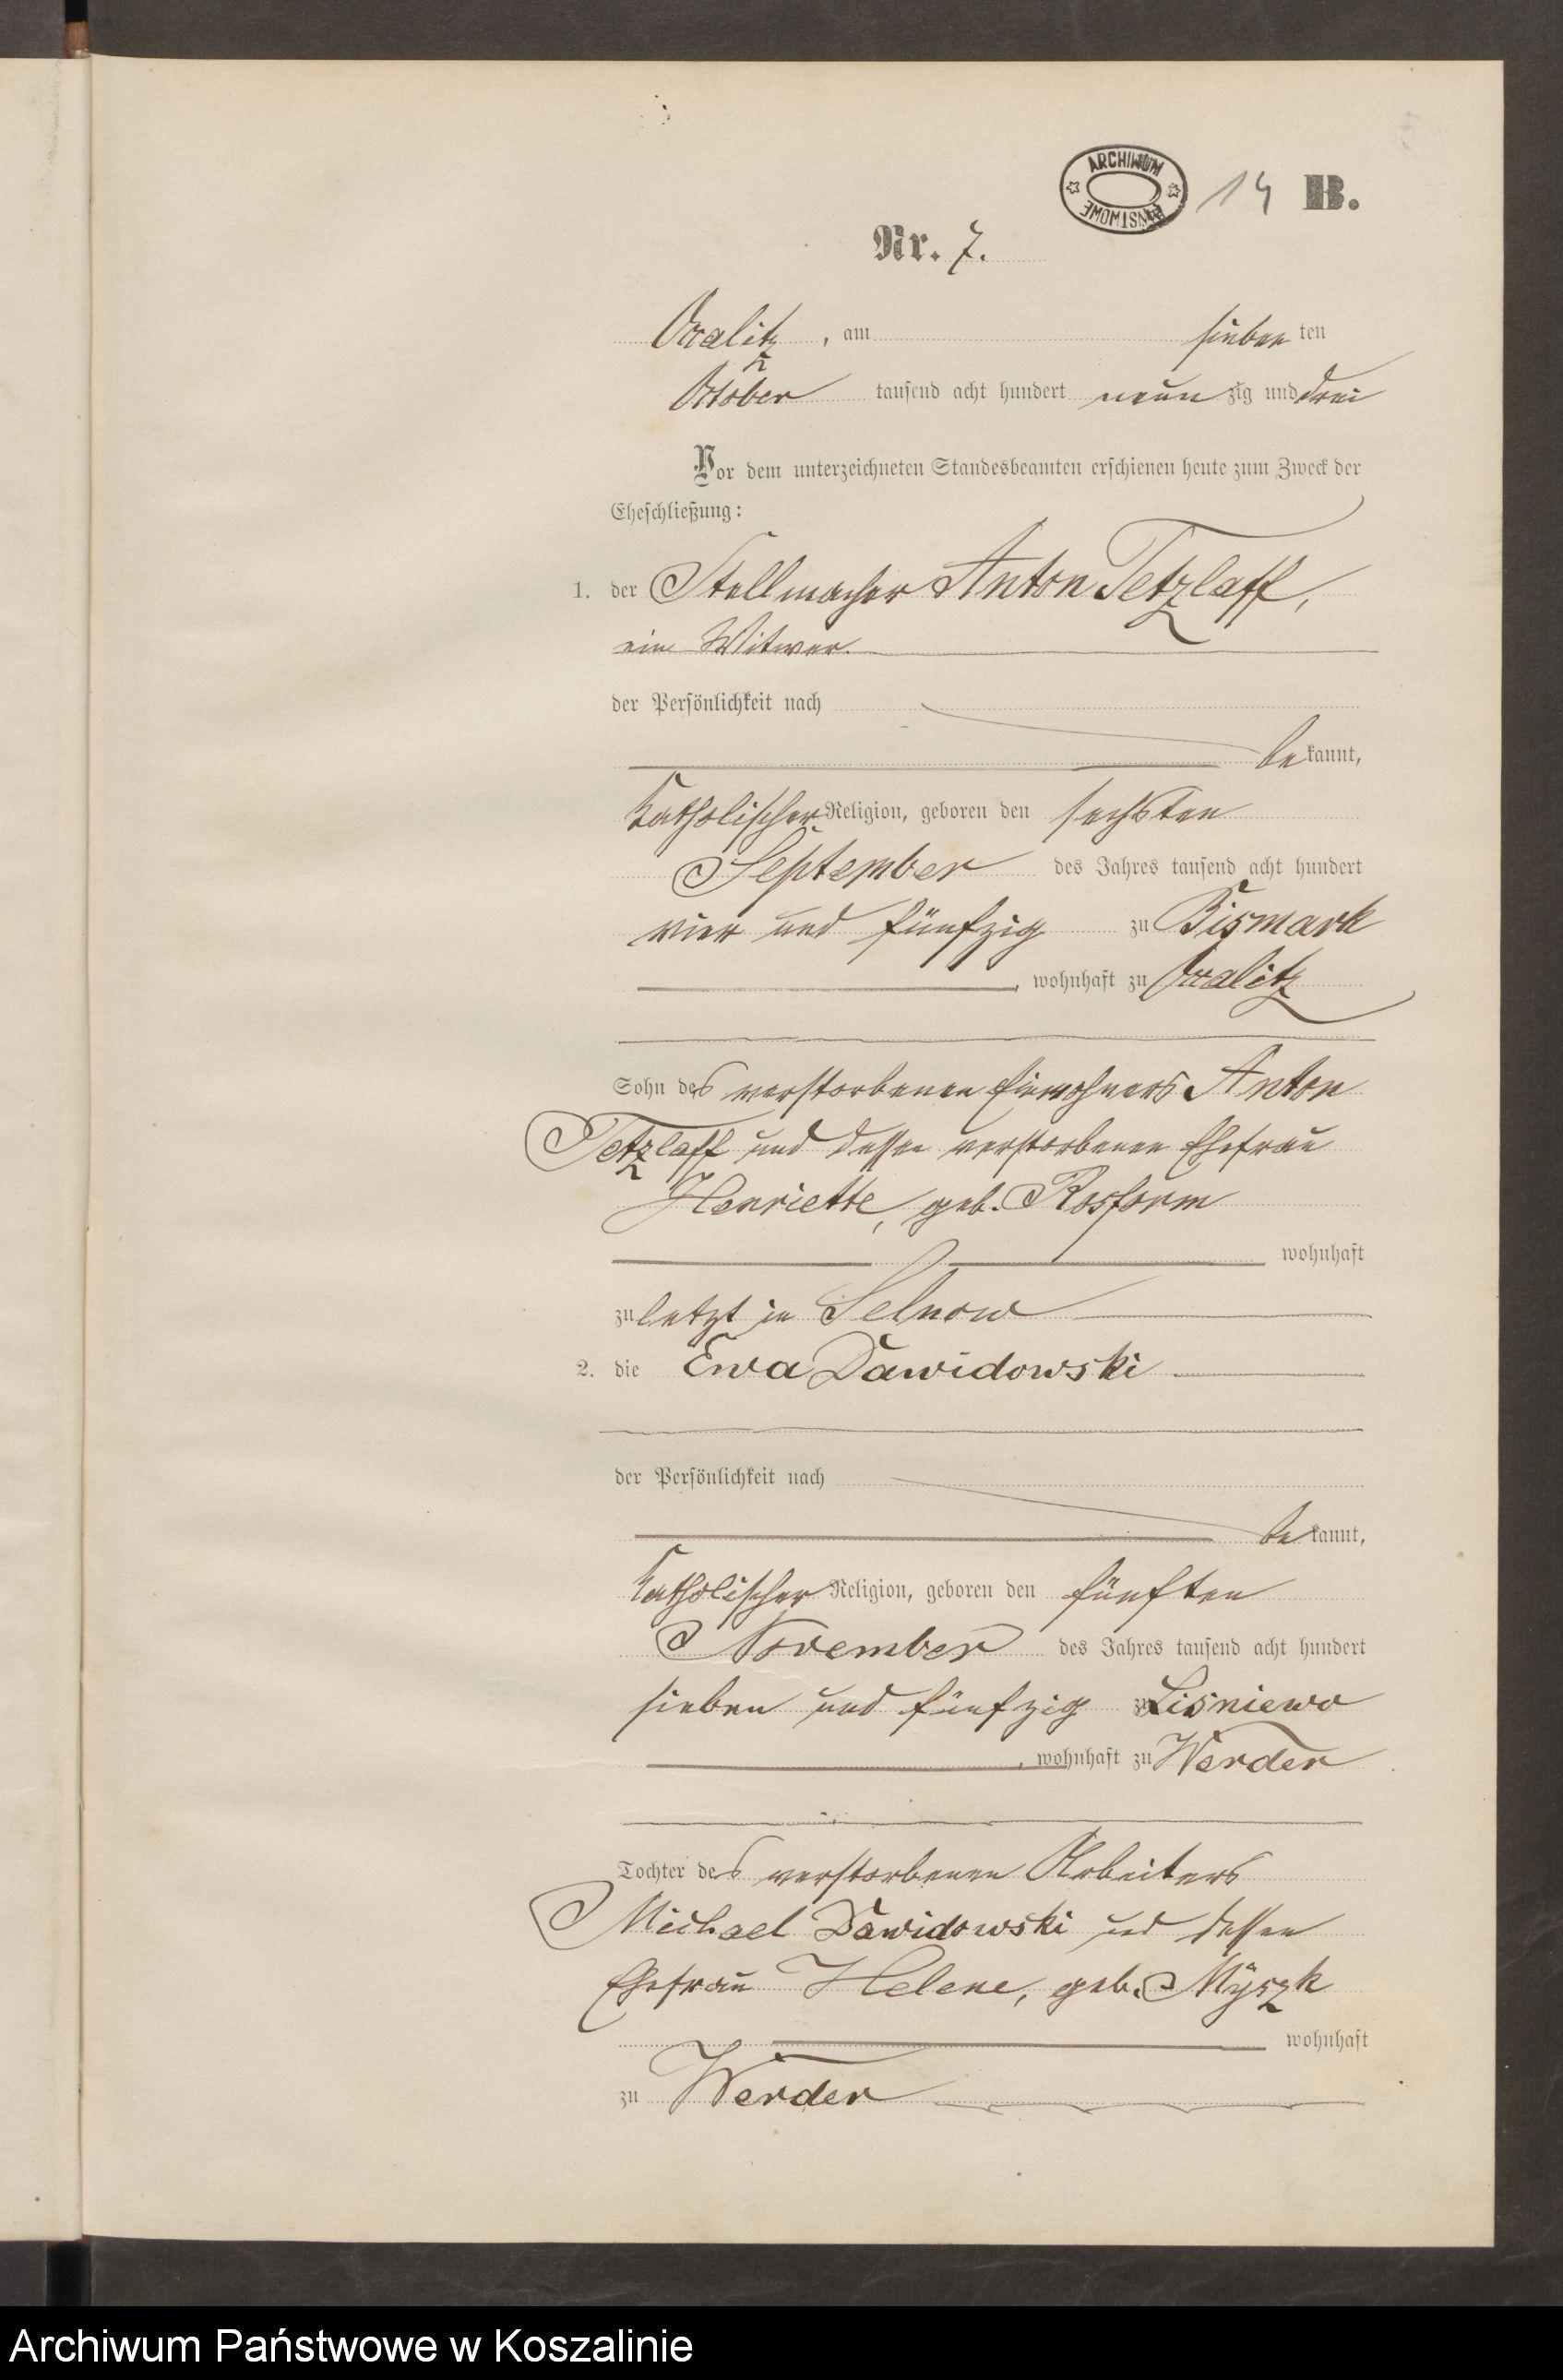 ARCHIWUM PAŃSTWOWE
14 B.
Nr. 7.
Occalitz, am siebenten
October tausend acht hundert neunzig und drei
Vor dem unterzeichneten Standesbeamten erschienen heute zum Zweck der
Eheschließung:
1. der Stellmacher Anton Tetzlaff,
ein Witwer.
der Persönlichkeit nach
bekannt,
katholischer Religion, geboren den sechsten
September des Jahres tausend acht hundert
vier und fünfzig zu Bismark
, wohnhaft zu Occalitz
Sohn des verstorbenen Einwohners Anton
Tetzlaff und dessen verstorbenen Ehefrau
Henriette, geb.
wohnhaft
zuletzt in Selnow
2. die Ewa Dawidowski
der Persönlichkeit nach
bekannt,
katholischer Religion, geboren den fünften
November des Jahres tausend acht hundert
sieben und fünfzig zu Lisniewo
, wohnhaft zu Werder
Tochter des verstorbenen Arbeiters
Michael Dawidowski und dessen
Ehefrau Helene, geb. Myszk
wohnhaft
zu Werder
Archiwum Państwowe w Koszalinie